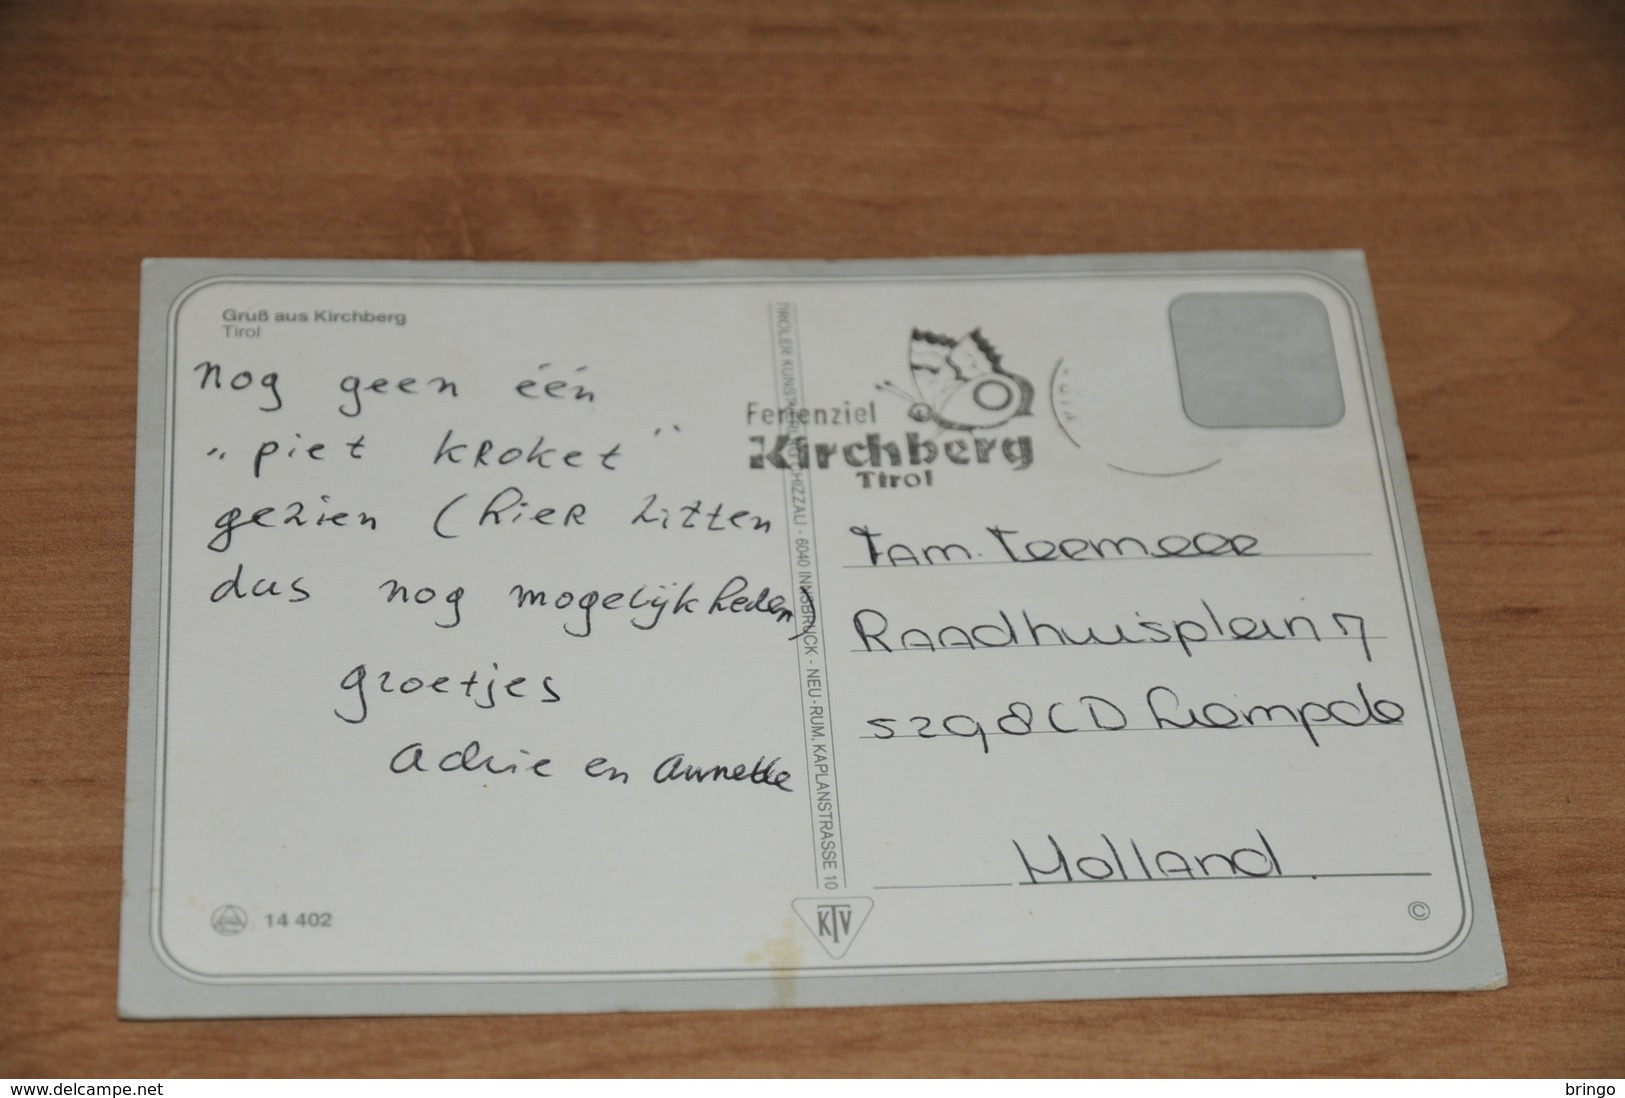 Gruß aus Kirchberg
Tirol
nog geen één
„piet kroket"
gezien (hier zitten
dus nog mogelijkheden)
groetjes
Adrie en Annette
14 402
TIROLER KUNSTVERLAG CHIZZALI - 6040 INNSBRUCK - NEU-RUM, KAPLANSTRASSE 10
KTV
Ferienziel
Kirchberg
Tirol
Fam.
Raadhuisplein 7
5298CD Liempde
Holland.
©
www.delcampe.net
bringo